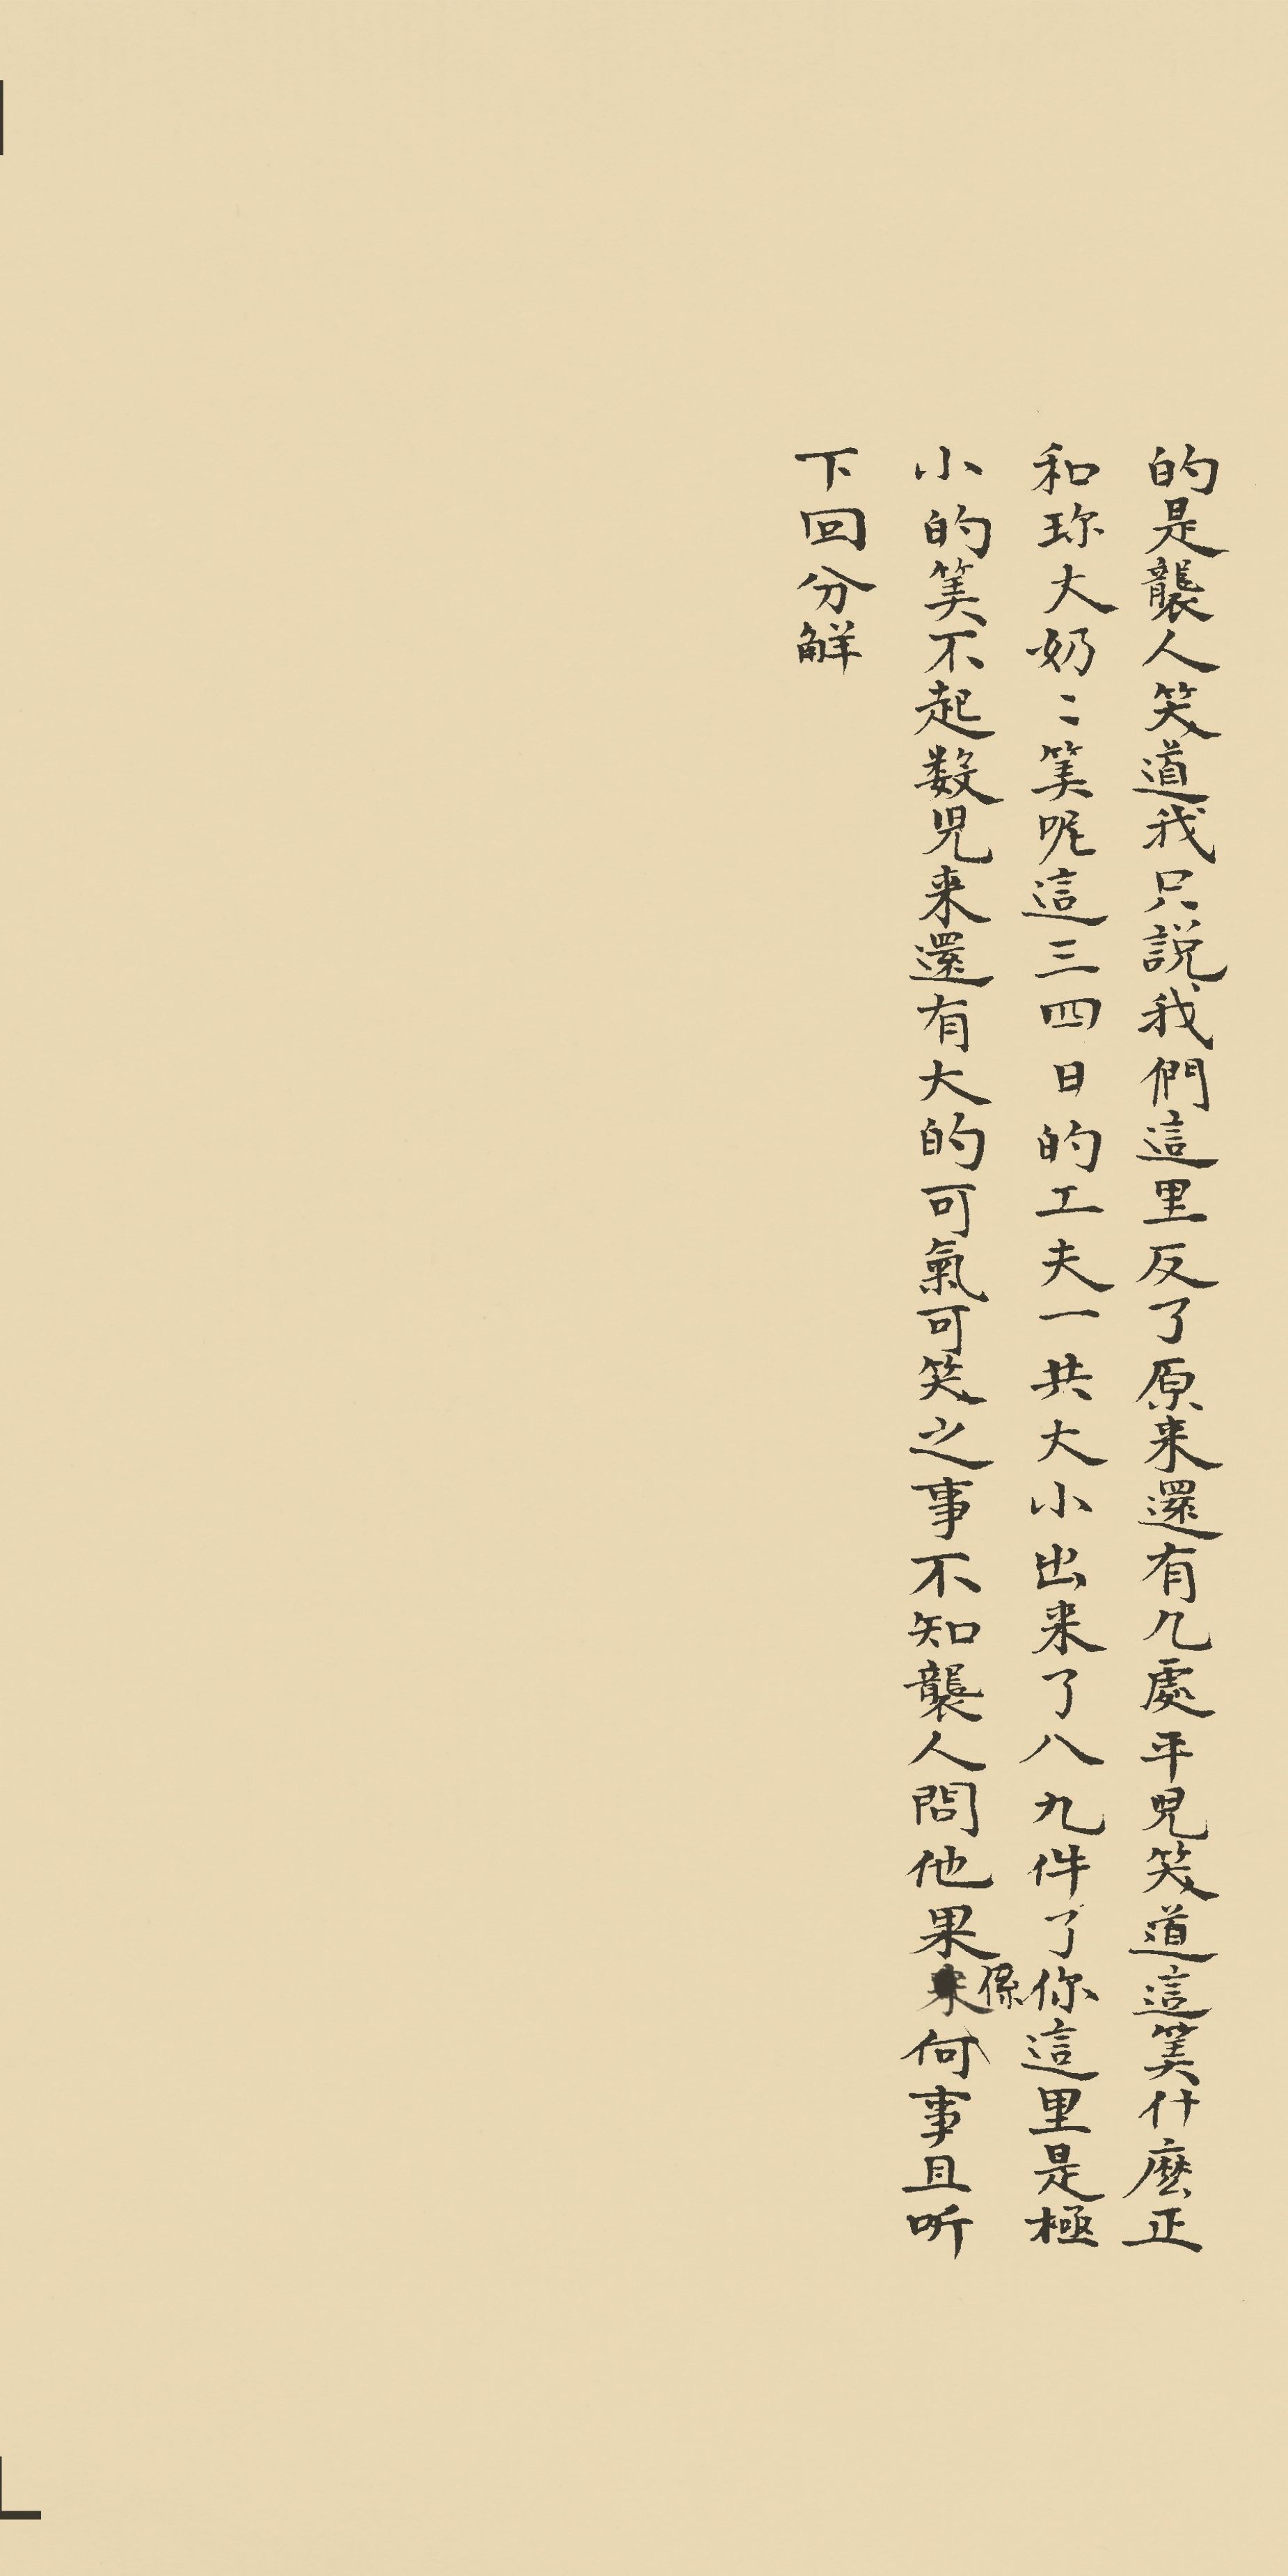 的是襲人笑道我只説我們這里反了原来還有几處平兒笑道這筭什麽正
和珎大奶〻筭呢這三四日的工夫一共大小出来了八九件了你這里是極
小的筭不起数兒来還有大的可氣可笑之事不知襲人問他果係何事且听
下回分觧